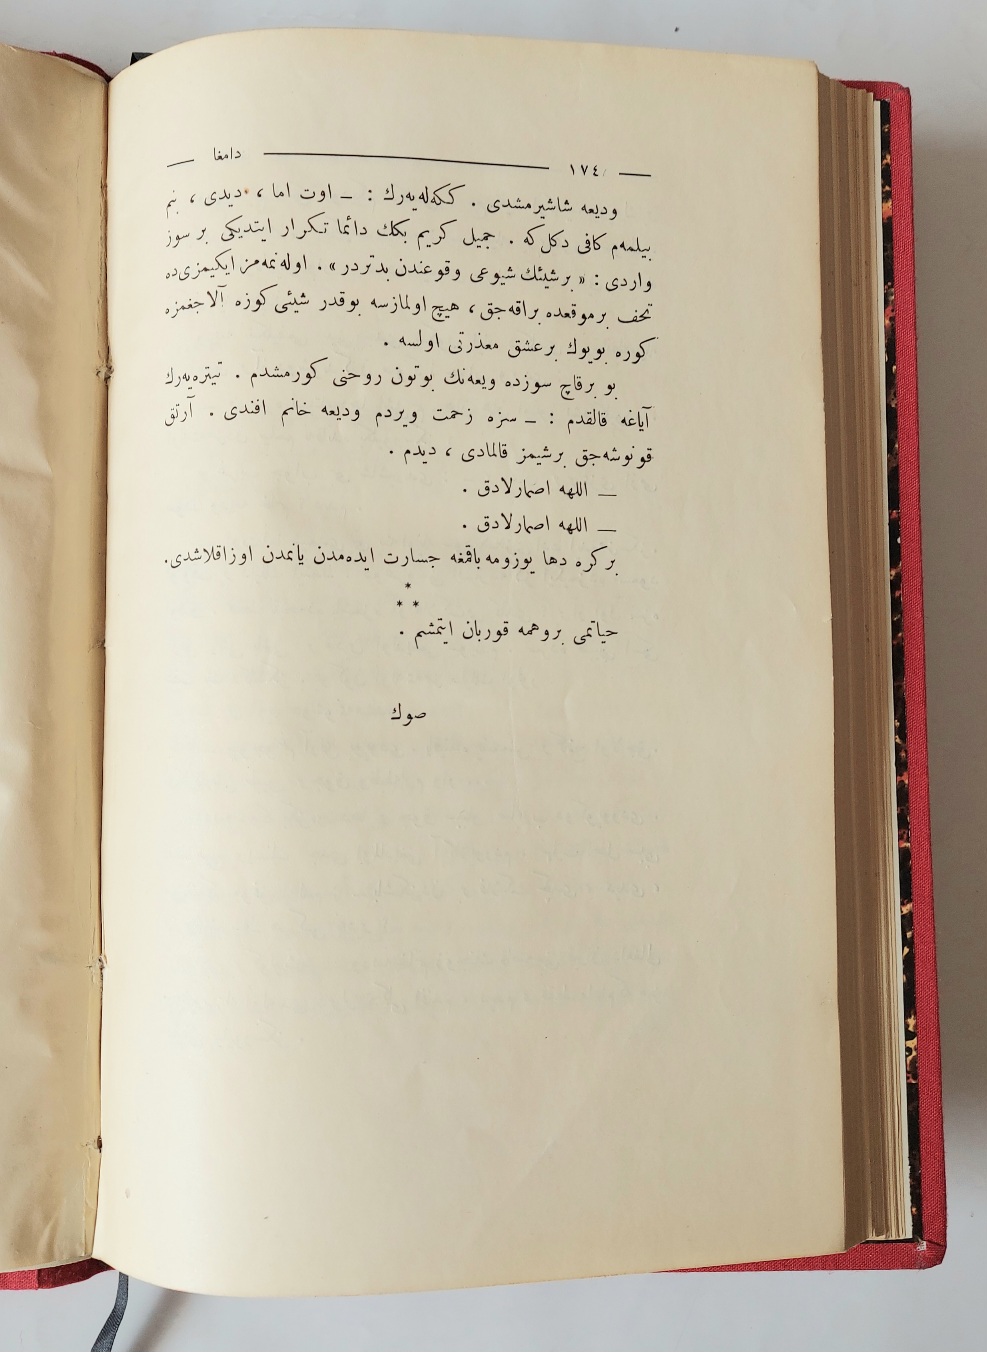 ١٧٤ دامغا
وديعه شاشيرمشدى . ككه‌له‌يه‌رك : ــ اوت اما ، ديدى ، بنم
بيلمه‌م كافى دكل كه . جميل كريم بكك دائما تكرار ايتديكى بر سوز
واردى : « برشيئك شيوعى وقوعندن بدتردر » . اوله‌نمه‌مز ايكيمزى ده
تحف برموقعده براقه‌جق ، هيچ اولمازسه بوقدر شيئى كوزه آلاجغمزه
كوره بويوك برعشق معذرتى اولسه .
بو برقاچ سوزده ويعه‌نك بوتون روحنى كورمشدم . تيتره‌يه‌رك
آياغه قالقدم : ــ سزه زحمت ويردم وديعه خانم افندى . آرتق
قونوشه‌جق برشيمز قالمادى ، ديدم .
ــ اللهه اصمارلادق .
ــ اللهه اصمارلادق .
بركره دها يوزومه باقمغه جسارت ايده‌مدن يانمدن اوزاقلاشدى.
*
* *
حياتمى بروهمه قوربان ايتمشم .
صوك